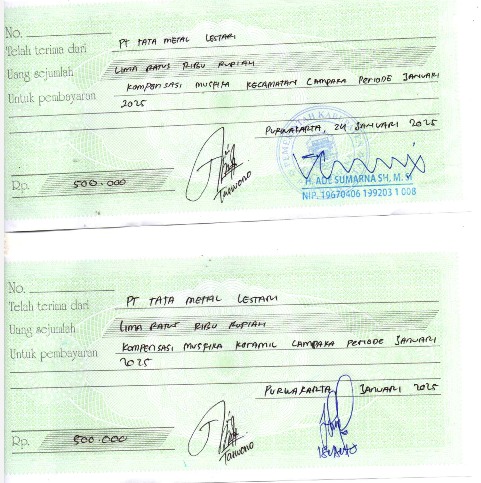 No.
Telah terima dari PT TATA METAL LESTARI
Uang sejumlah LIMA RATUS RIBU RUPIAH
Untuk pembayaran KOMPENSASI MUSPIKA KECAMATAN CAMPAKA PERIODE JANUARI
2025
PURWAKARTA, 24 JANUARI 2025
Rp. 500.000
Tarwono
H. ADE SUMARNA SH, M. Si
NIP. 19670406 199203 1 008
No.
Telah terima dari PT TATA METAL LESTARI
Uang sejumlah LIMA RATUS RIBU RUPIAH
Untuk pembayaran KOMPENSASI MUSPIKA KORAMIL CAMPAKA PERIODE JANUARI
2025
PURWAKARTA JANUARI 2025
Rp. 500.000
Tarwono